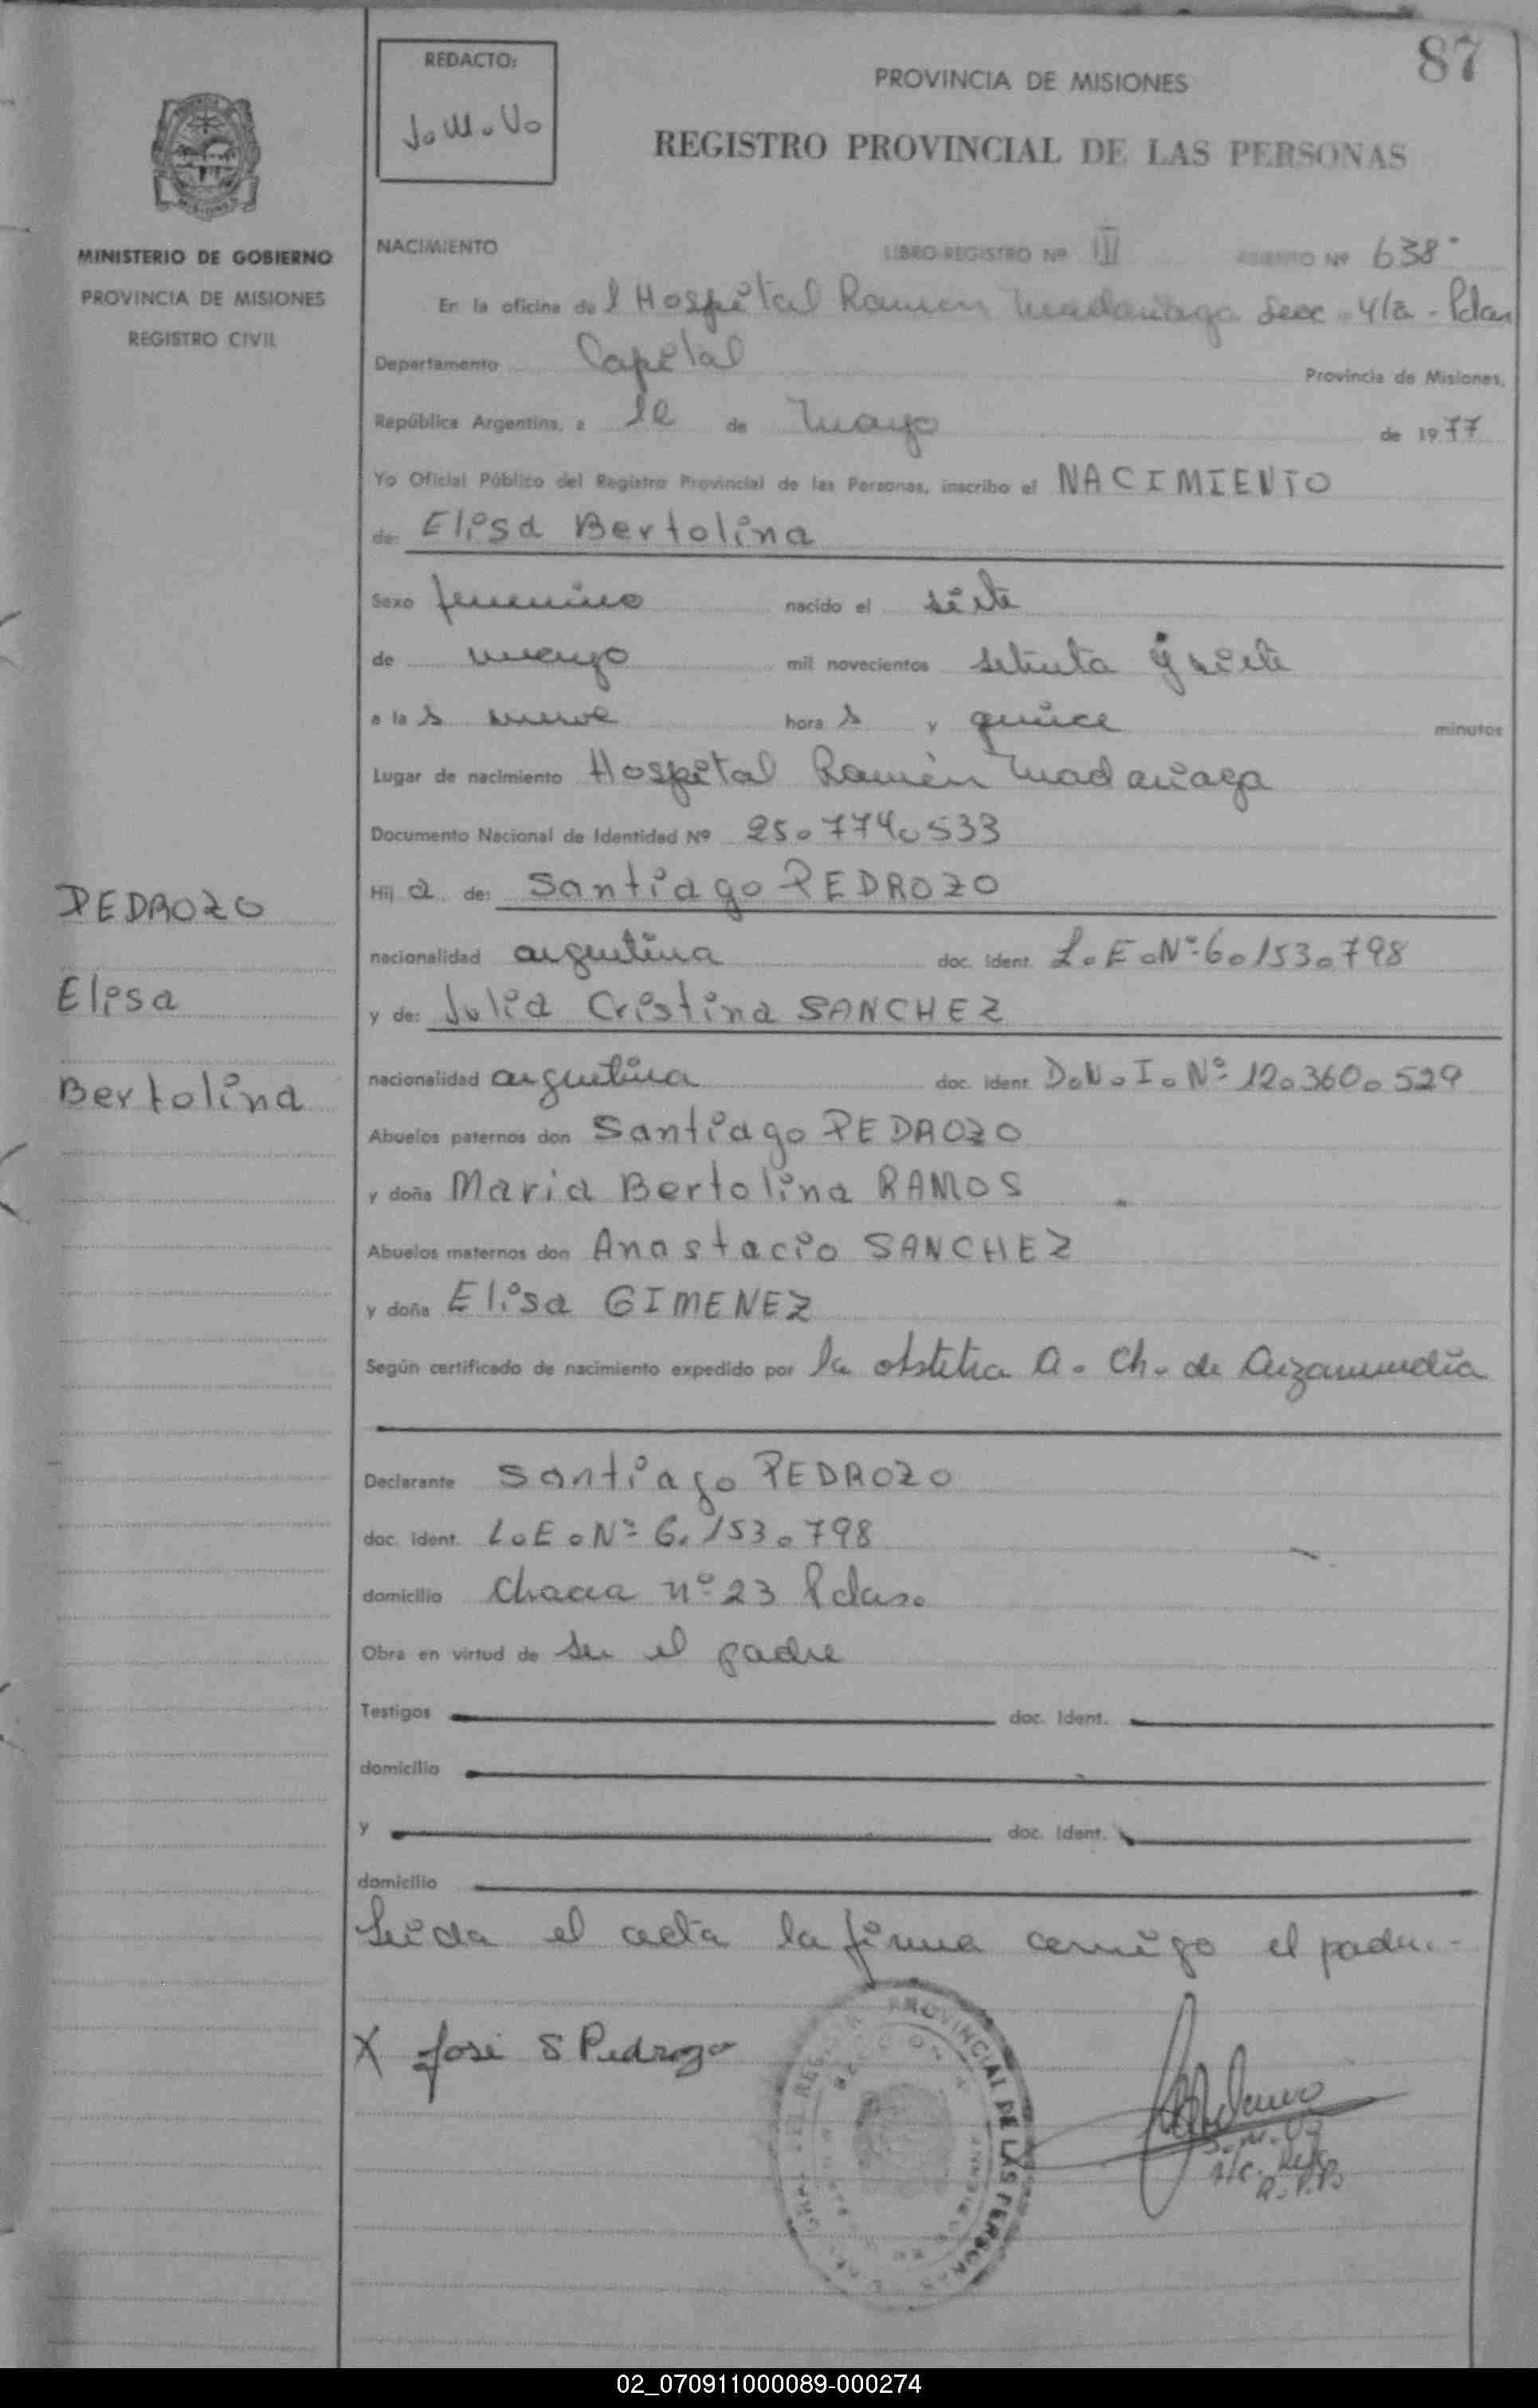 87
REDACTO:
J.M.V.
PROVINCIA DE MISIONES
REGISTRO PROVINCIAL DE LAS PERSONAS
MISIONES
MINISTERIO DE GOBIERNO
PROVINCIA DE MISIONES
REGISTRO CIVIL
NACIMIENTO LIBRO REGISTRO Nº III ASIENTO Nº 638
En la oficina del Hospital Ramón Madariaga Secc. 4/a - Pdas
Departamento Capital Provincia de Misiones,
República Argentina, a de Mayo de 1977
Yo Oficial Público del Registro Provincial de las Personas, inscribo el NACIMIENTO
de: Elisa Bertolina
Sexo femenino nacido el siete
de mayo mil novecientos setenta y siete
a las nueve horas y quince minutos
Lugar de nacimiento Hospital Ramón Madariaga
Documento Nacional de Identidad Nº 25.774.533
Hija de: Santiago PEDROZO
nacionalidad argentina doc. ident. L.E.Nº 6.153.798
y de: Julia Cristina SANCHEZ
nacionalidad argentina doc. ident. D.N.I.Nº 12.360.529
Abuelos paternos don Santiago PEDROZO
y doña Maria Bertolina RAMOS
Abuelos maternos don Anastacio SANCHEZ
y doña Elisa GIMENEZ
Según certificado de nacimiento expedido por la obstetra A. Ch. de
Declarante Santiago PEDROZO
doc. ident. L.E.Nº 6.153.798
domicilio Chacra nº 23 Pdas.
Obra en virtud de ser el padre
Testigos doc. ident.
domicilio
y doc. ident.
domicilio
Leida el acta la firma conmigo el padre.-
X Jose S Pedrozo
PROVINCIAL DE LAS PERSONAS
PEDROZO
Elisa
Bertolina
02_070911000089-000274